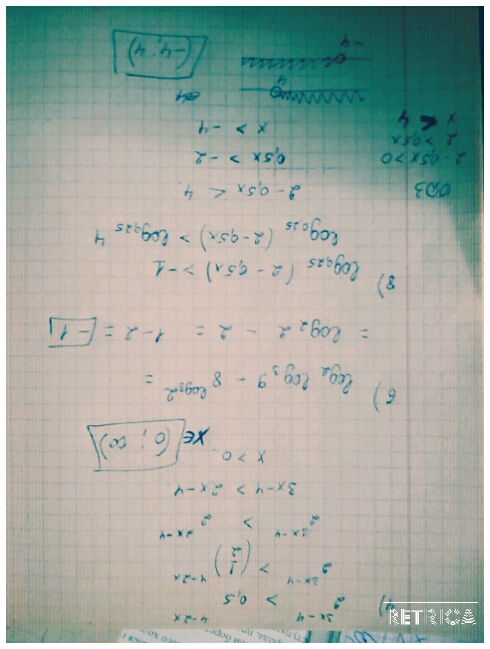 2^(3x-4) > 0,5^(4-2x)
2^(3x-4) > (1/2)^(4-2x)
2^(3x-4) > 2^(2x-4)
3x-4 > 2x-4
x > 0
x∈ (0; ∞)
6) log₂ log₃ 9 - 8^(log₈ 2) =
= log₂ 2 - 2 = 1-2 = -1
8) log₀,₂₅ (2-0,5x) > -1
log₀,₂₅ (2-0,5x) > log₀,₂₅ 4
ОДЗ
2-0,5x>0
2>0,5x
x < 4
2-0,5x < 4
0,5x > -2
x > -4
4
-4
(-4; 4)
RETRICA